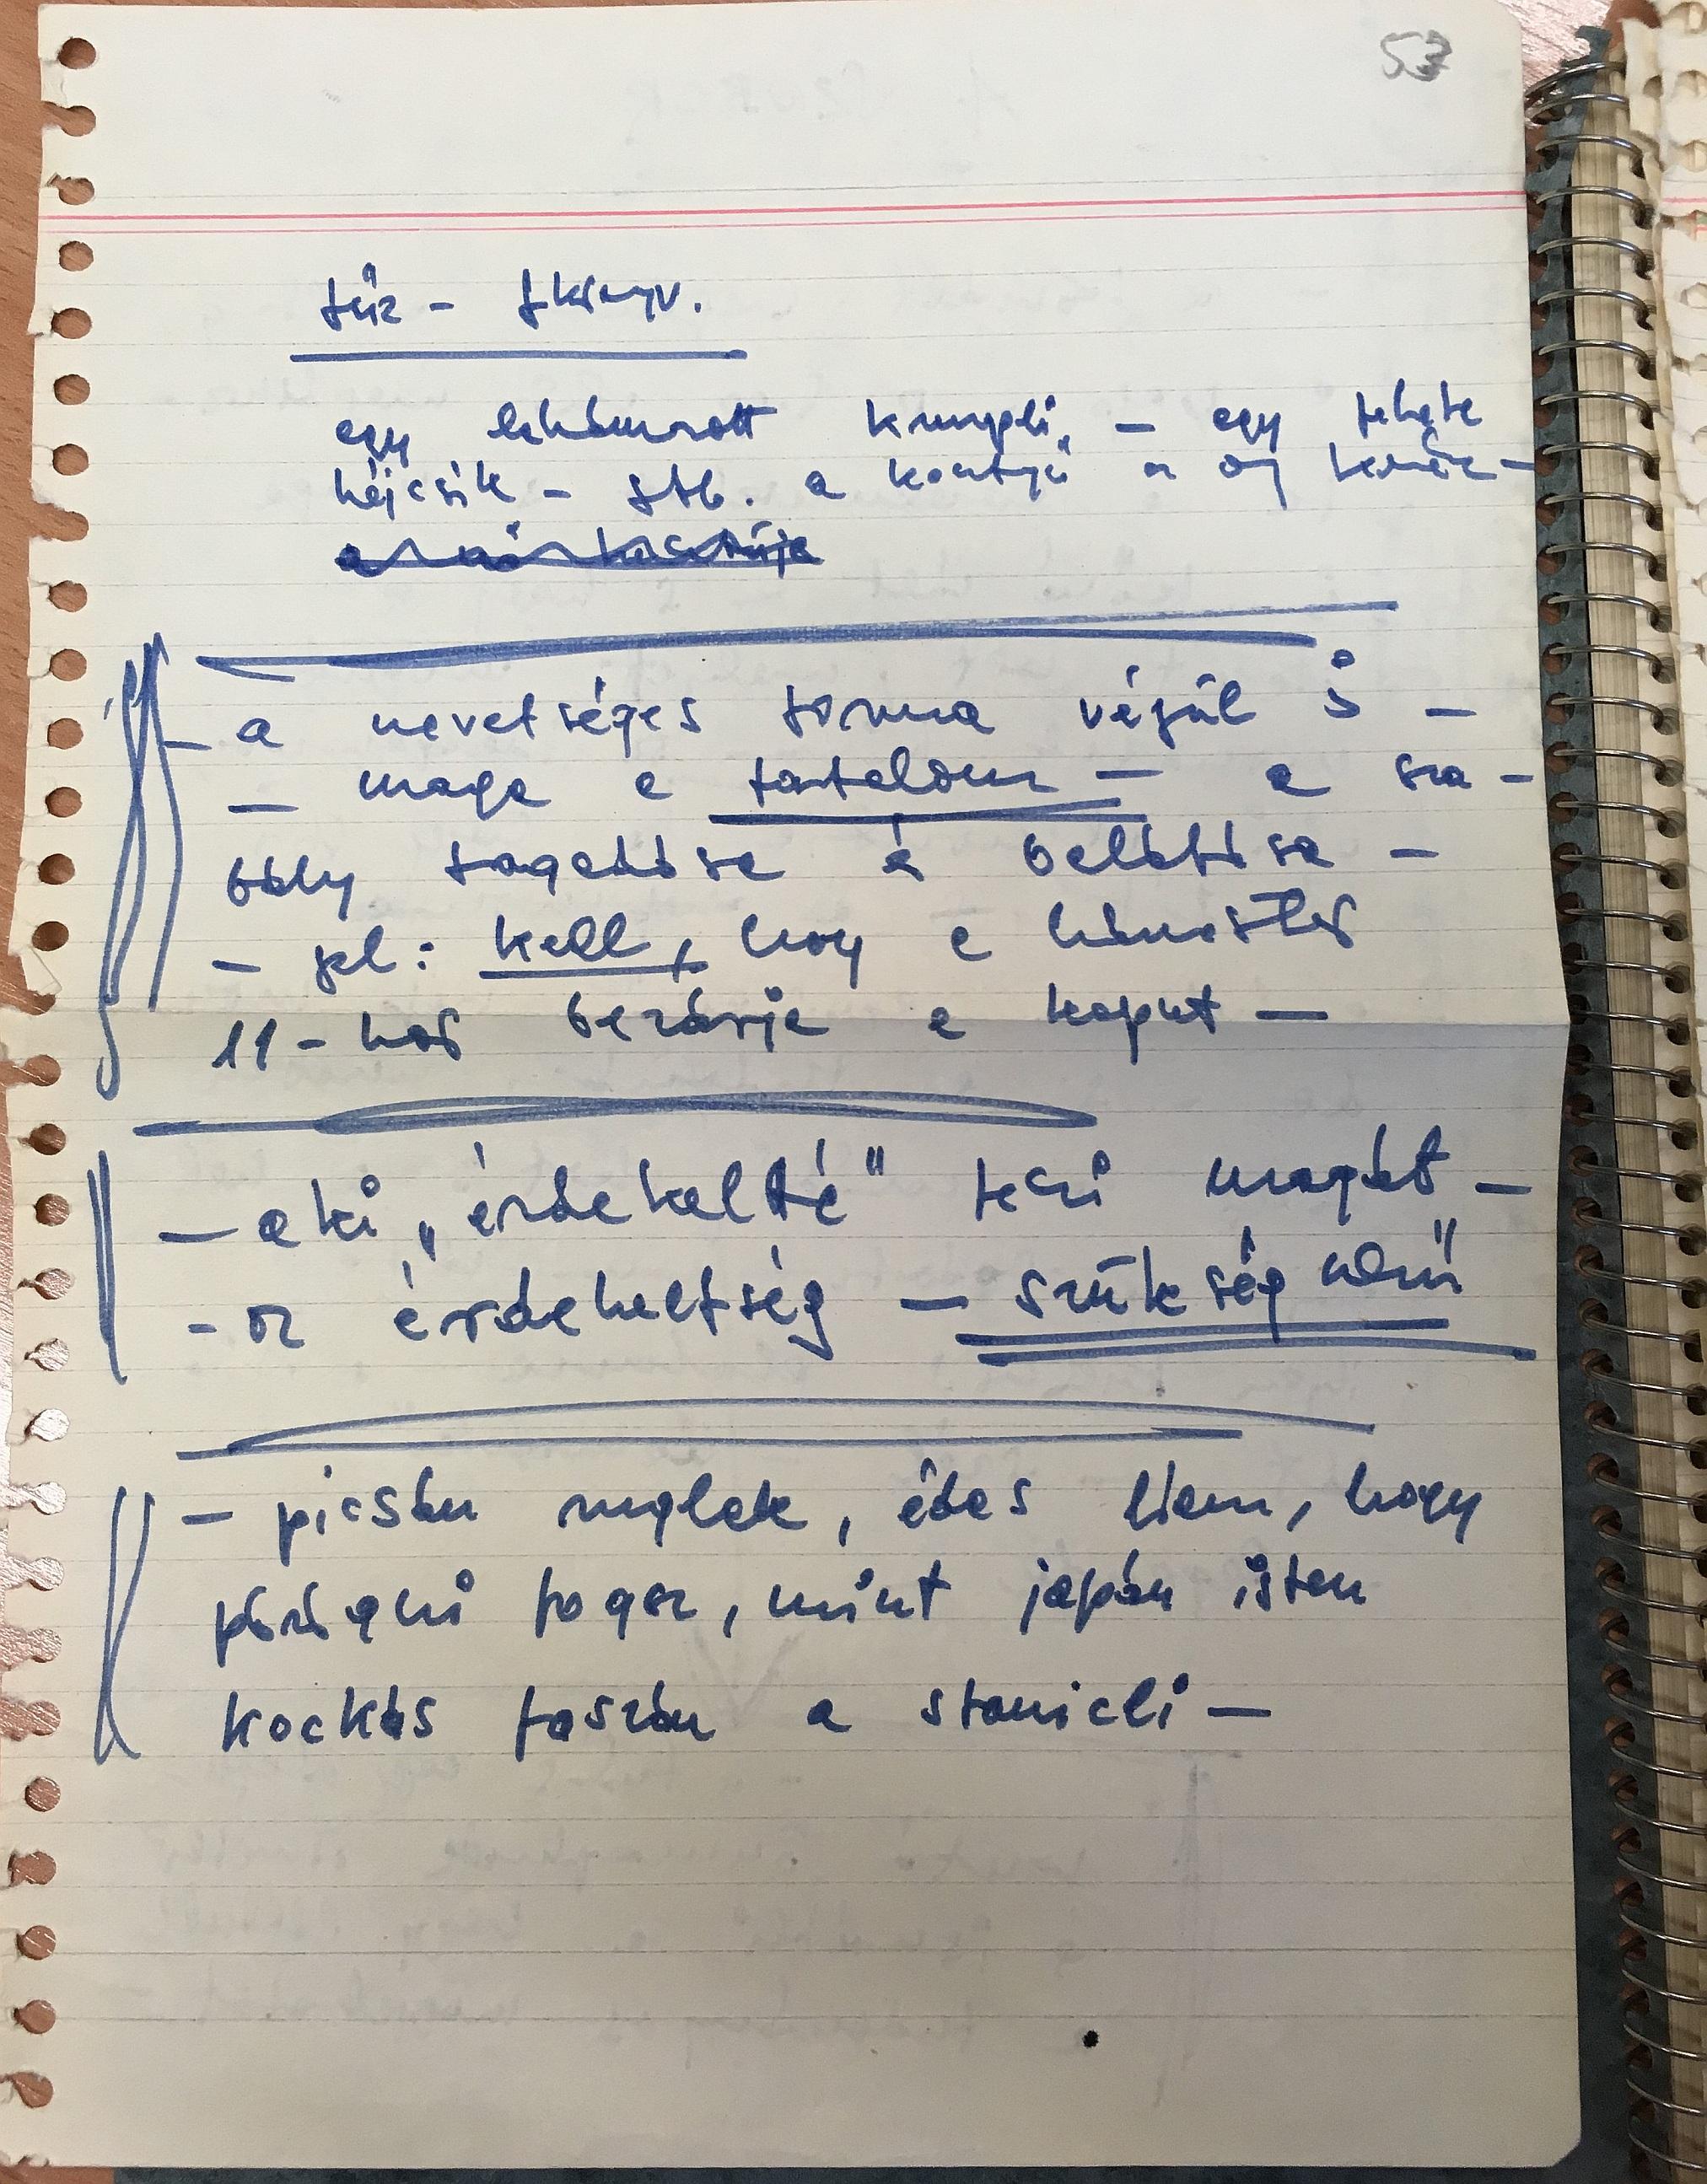 53
tűz - fkönyv.
egy lehámozott krumpli, - egy fekete
héjcsík - stb. a kontyú a
a
- a nevetséges forma végül ö -
- maga a tartalom - a sza -
bály tagadása és belátása -
- pl: kell, hogy a házmester
11-kor bezárja a kaput -
- aki „érdekeltté" teszi magát -
- az érdekeltség - szükség nem"
- picsán ruglak, édes fiem, hogy
pörögni fogsz, mint japán isten
kockás faszán a stanicli -